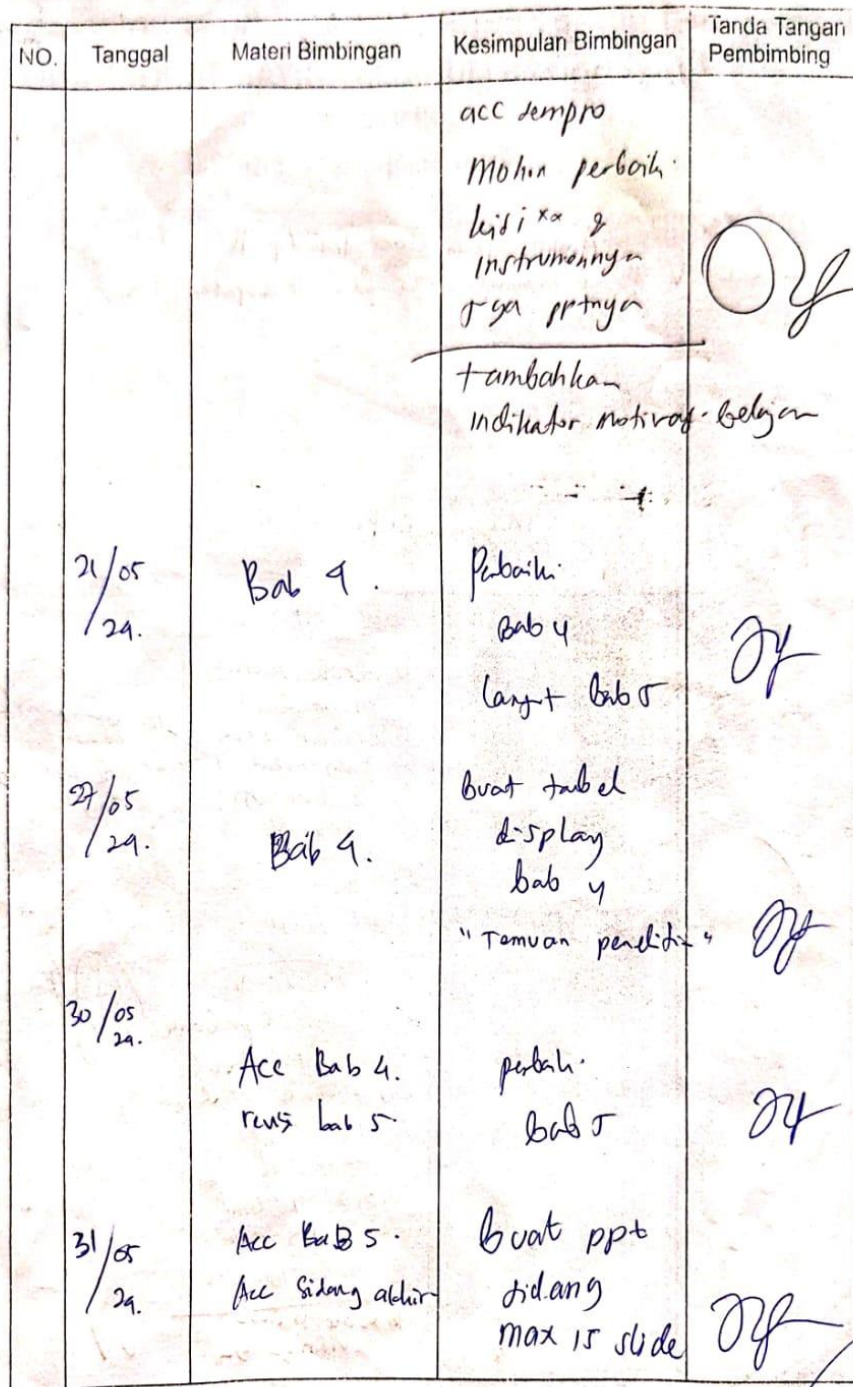 NO. Tanggal Materi Bimbingan Kesimpulan Bimbingan Tanda Tangan Pembimbing
acc sempro
Mohon perbaiki
kisi
instrumennya
pptnya
tambahkan
indikator motivasi belajar
21/05/24. Bab 4. Perbaiki
Bab 4
lanjut bab 5
27/05/24. Bab 4. Buat tabel
display
bab 4
"Temuan penelitian"
30/05/24.
Acc Bab 4. perbaiki
revisi bab 5 bab 5
31/05/24. Acc Bab 5. buat ppt
Acc Sidang akhir sidang
max 15 slide